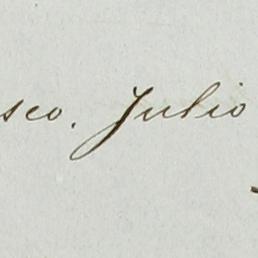 sco. Julio